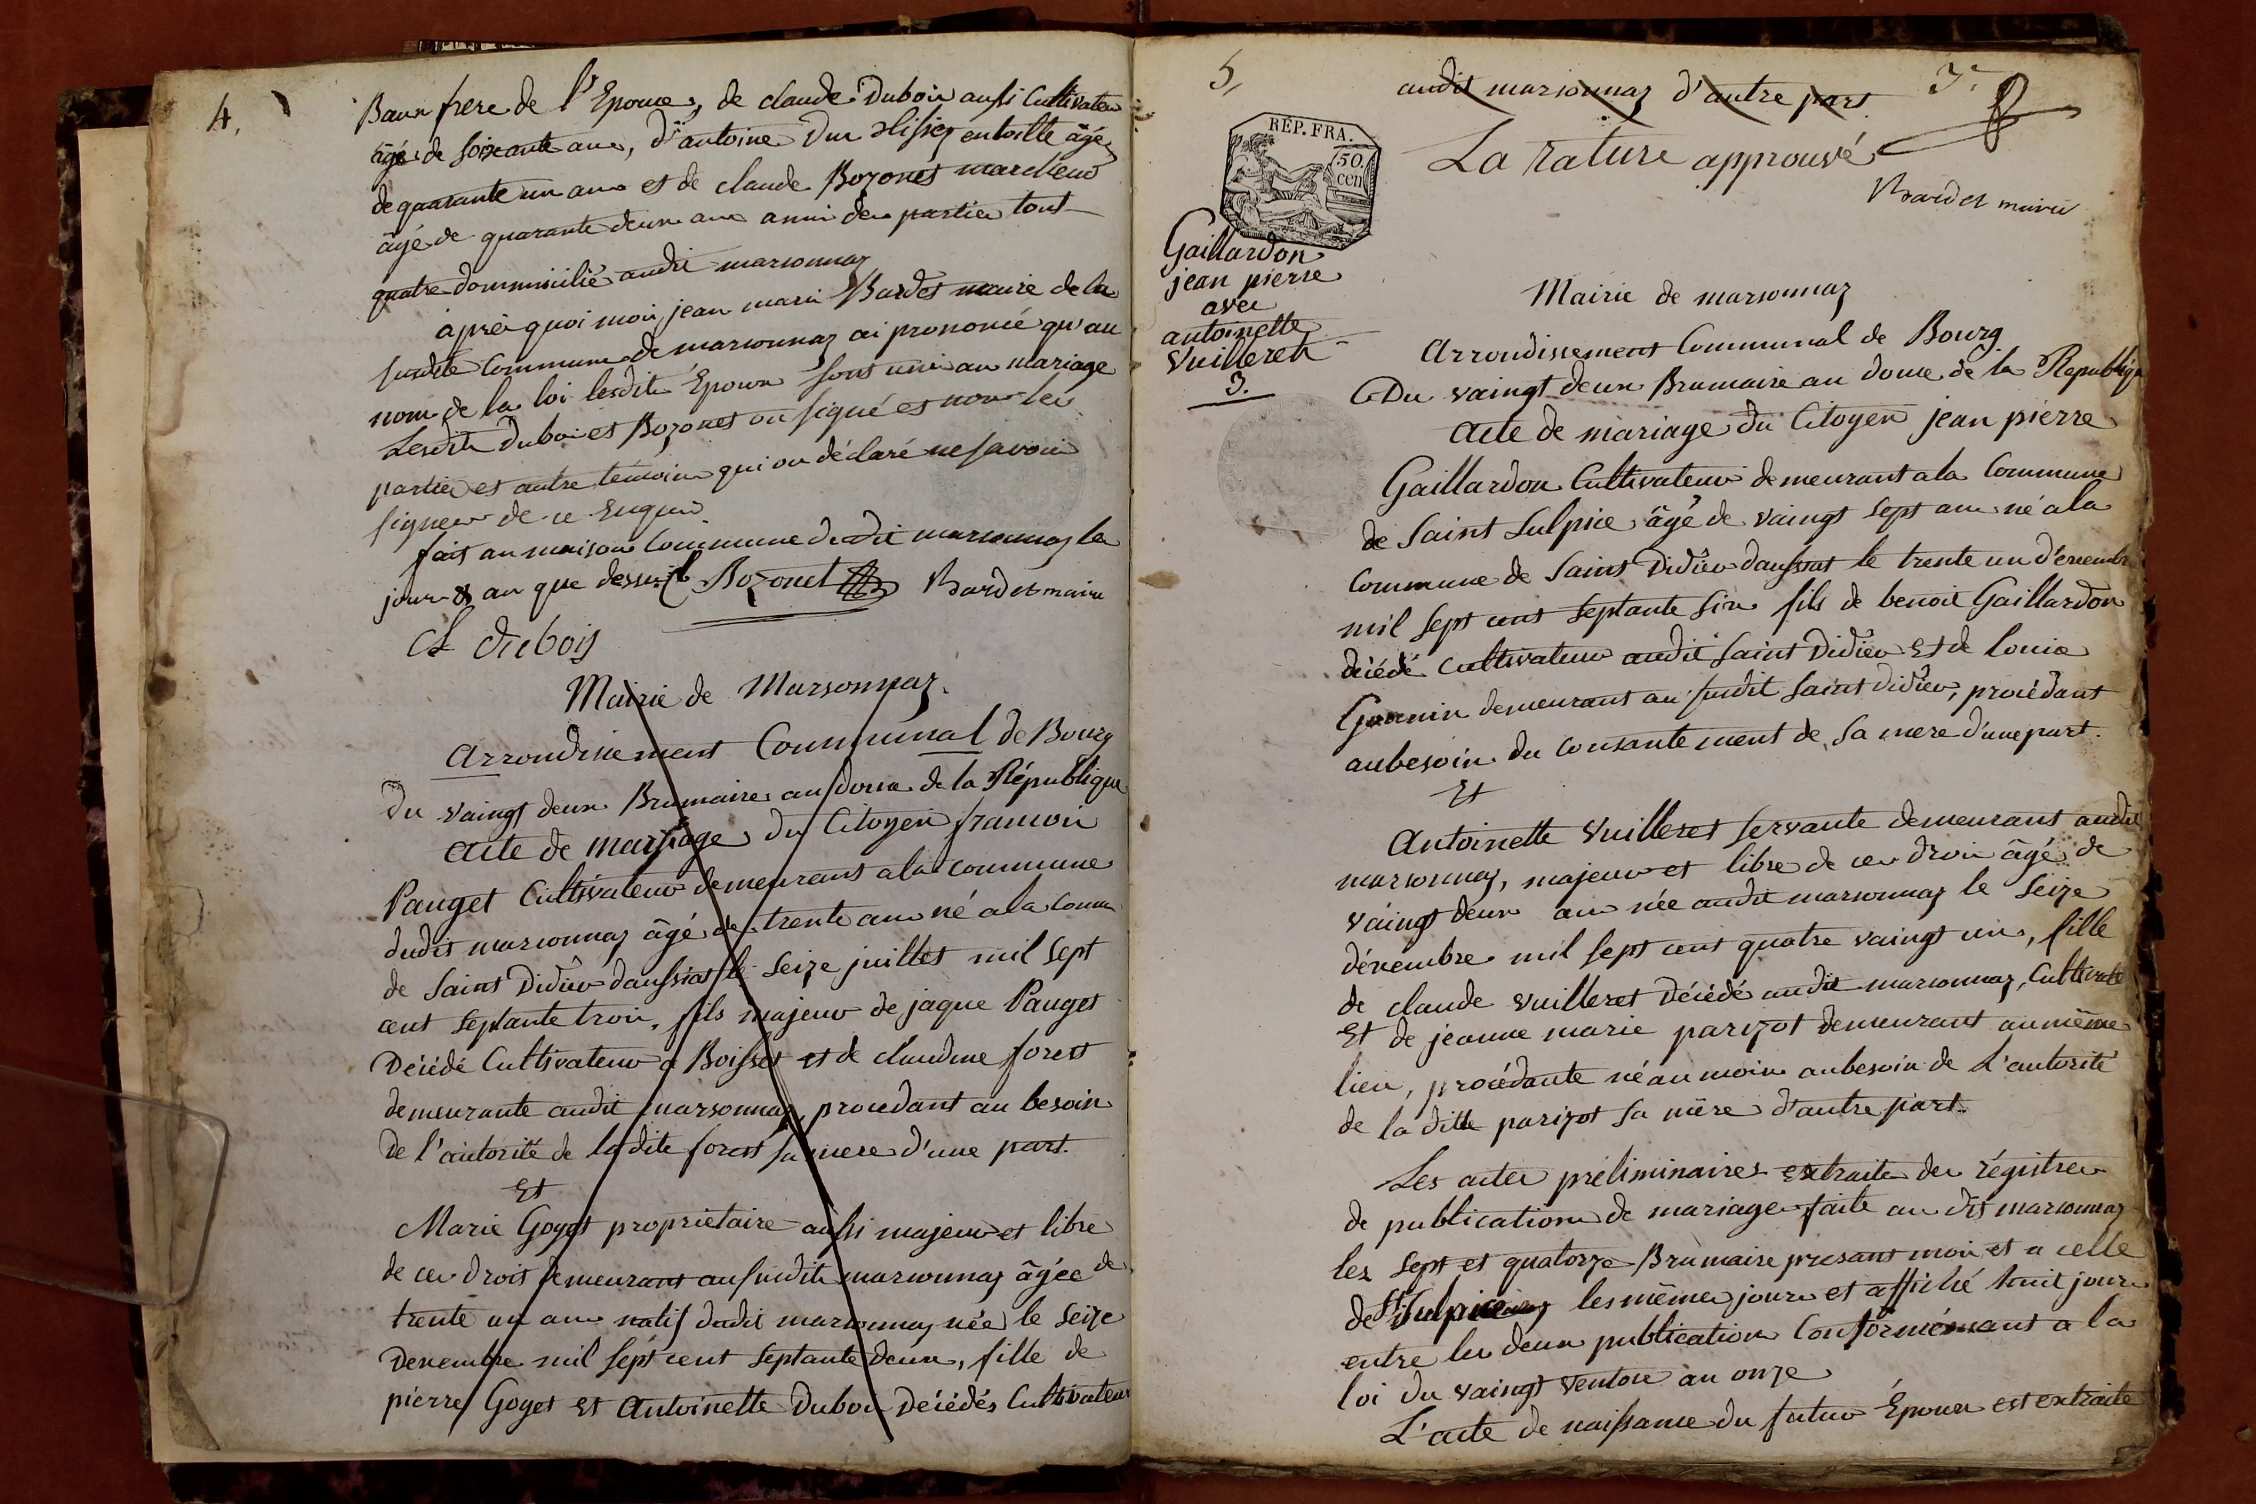 4.
Baux frere de l'Epouse, de claude Duboix aussi Cultivateu
âgé de soixante ans, d'antoine Duc
de quarante un ans et de claude Bozonet marelleur
âgé de quarante deux ans amis des parties tout
quatre dommicilié audit marsonnaz
après quoi moi, jean marie Bardet maire de la
susdite Commune de marsonnaz ai prononcé qu'au
nom de la loi lesdits Epoux sont unis au mariage
Lesdits Dubois et Bozonet on signé et non les
parties et autre témoins qui on déclaré ne savoir
signer de ce Enquis
fait au maison Commune dudit marsonnaz les
jour & an que dessus. Bozonet Bardet maire
Cl dubois
Mairie de Marsonnaz.
Arrondissement Communal de Bourg
Du vaingt deux Brumaire an douze de la République
Acte de mariage du Citoyen francois
Pauget Cultivateur demeurant a la commune
dudit marsonnaz âgé de trente ans né a la Comun
de Saint Didier daussiat le seize juillet mil sept
cent septante trois, fils majeur de jaque Pauget
Décédé Cultivateur a Boisset et de claudine forest
demeurante audit marsonnaz, procedant au besoin
De l'autorité de ladite forest sa mere d'une part.
Et
Marie Goyet proprietaire aussi majeur et libre
de ces droit demeurant au susdit marsonnaz âgée de
trente un ans natif dudit marsonnaz née le seize
Decembre mil sept cent septante deux, fille de
pierre Goyet Et Antoinette Dubois Décédés Cultivateur
5,
audit marsonnaz d'autre part
3e
La rature approuvé
Bardet maire
RÉP. FRA.
50.
cen
Gaillardon
jean pierre
avec
antoinette
Vuilleret
3.
Mairie de marsonnaz
Arrondissement Communal de Bourg
Du vaingt deux Brumaire an douze de la Republiqu
Acte de mariage du Citoyen jean pierre
Gaillardon Cultivateur demeurant a la Commune
de Saint Sulpice âgé de vaingt sept ans né a la
Commune de Saint Didier daussiat le trente un décembre
mil sept cent septante six fils de benoit Gaillardon
décédé cultivateur audit Saint Didier Et de louise
demeurant au susdit Saint didier, procédant
aubesoin du consantement de sa mere d'une part.
Et
Antoinette Vuilleret servante demeurant audit
marsonnaz, majeur et libre de ces droit âgé de
vaingt deux ans née audit marsonnaz le seize
décembre mil sept cent quatre vaingt un, fille
de claude vuilleret Décédé audit marsonnaz, Cultivate
Et de jeanne marie parizot demeurant au même
lieu, procédante né au moins aubesoin de L'autorité
de la ditte parizot sa mère d'autre part.
Les actes préliminaires extraite des régistres
de publications de mariage faite au dit marsonnaz
les sept et quatorze Brumaire presant mois et a celle
de St Sulpice les même jours et affiché huit jours
entre les deux publication Conformémant a la
loi du vaingt ventose an onze
L'acte de naissance du futur Epoux est extraite